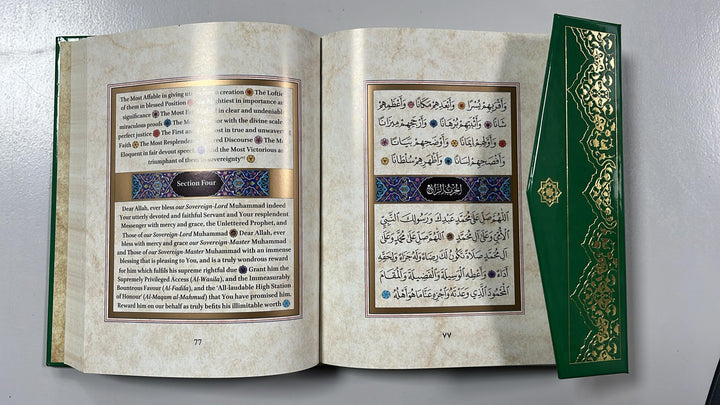 The Most Affable in giving creation The Loftie
of them in blessed Position ghtiest in importance an
significance The Most in clear and undeniabl
miraculous proofs The Mo or with the divine scale
perfect justice The First and most in true and unwaver
Faith The Most Resplenden ered Discourse The Mo
Eloquent in fair devout speech and the Most Victorious a
triumphant of them in sovereignty
Section Four
Dear Allah, ever bless our Sovereign-Lord Muhammad indeed
Your utterly devoted and faithful Servant and Your resplendent
Messenger with mercy and grace, the Unlettered Prophet, and
Those of our Sovereign-Lord Muhammad Dear Allah, ever
bless with mercy and grace our Sovereign-Master Muhammad
and Those of our Sovereign-Master Muhammad with an immense
blessing that is pleasing to You, and is a truly wondrous reward
for him which fulfils his supreme rightful due Grant him the
Supremely Privileged Access (Al-Wasila), and the Immeasurably
Bountrous Favour (Al-Fadila), and the 'All-laudable High Station
of Honour' (Al-Maqam al-Mahmud) that You have promised him.
Reward him on our behalf as truly befits his illimitable worth
77
وَأَقْرَبِهِمْ يُسْرًا وَأَبْعَدِهِمْ مَكَانًا وَأَعْظَمِهِمْ
شَانًا وَأَثْبَتِهِمْ بُرْهَانًا وَأَرْجَحِهِمْ مِيزَانًا
وَأَوَّلِهِمْ إِيمَانًا وَأَوْضَحِهِمْ بَيَانًا
وَأَفْصَحِهِمْ لِسَانًا وَأَظْهَرِهِمْ سُلْطَانًا
الحزب الرابع
اللَّهُمَّ صَلِّ عَلَى مُحَمَّدٍ عَبْدِكَ وَرَسُولِكَ النَّبِيِّ
الْأُمِّيِّ وَعَلَى آلِ مُحَمَّدٍ اللَّهُمَّ صَلِّ عَلَى مُحَمَّدٍ وَعَلَى
آلِ مُحَمَّدٍ صَلَاةً تَكُونُ لَكَ رِضَاءً وَلَهُ جَزَاءً وَلِحَقِّهِ
أَدَاءً وَأَعْطِهِ الْوَسِيلَةَ وَالْفَضِيلَةَ وَالْمَقَامَ
الْمَحْمُودَ الَّذِي وَعَدْتَهُ وَاجْزِهِ عَنَّا مَا هُوَ أَهْلُهُ
٧٧